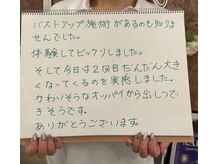 バストアップ施術があるのも知りま
せんでした。
体験してビックリしました。
そして今日は2回目だんだん大き
くなってくるのを実感しました。
かわいそうなオッパイから出しつで
きそうです。
ありがとうございます。